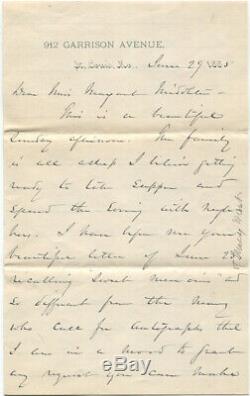 912 GARRISON AVENUE,
St. Louis, Mo. June 29 1885
Dear Miss Margaret
This is a beautiful
Sunday afternoon. The family
is all asleep I believe getting
ready to take Supper and
spend the Evening with neigh
bors. I have before me your
beautiful letter of June 23
recalling Sweet memories and
so different from the many
who call for Autographs that
I am in a mood to grant
any request you can make